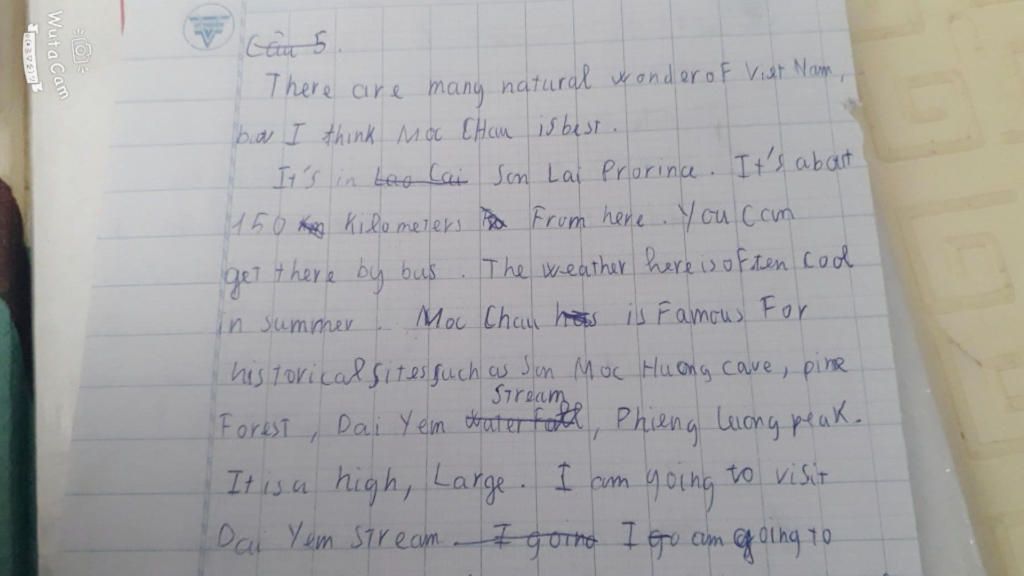 WutaCam
Câu 5.
There are many natural wonder of Viet Nam,
but I think Moc Chau is best.
It's in Lao Cai Son Lai Prorince. It's about
150 km Kilometers From here. You can
get there by bus. The weather here is often cool
in summer. Moc Chau has is Famous For
historical sites such as Son Moc Huong cave, pine
Stream
Forest, Dai Yem waterfall, Phieng luong peak.
It is a high, Large. I am going to visit
Dai Yem stream. I going I go am going to